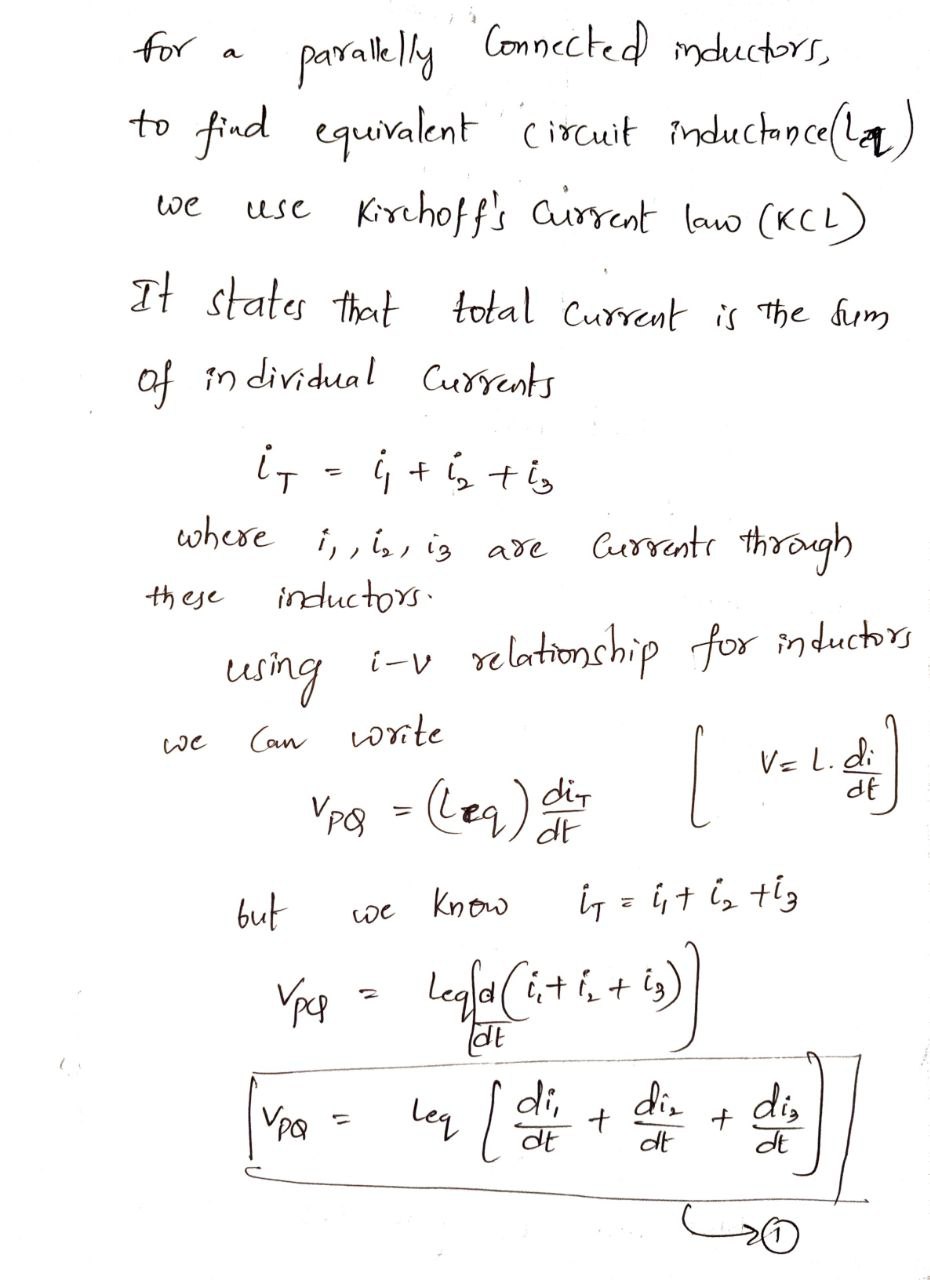 for a parallelly Connected inductors,
to find equivalent circuit inductance(Leq)
we use Kirchoff's Current law (KCL)
It states that total Current is the sum
of individual Currents
i_T = i_1 + i_2 + i_3
where i_1, i_2, i_3 are Currents through
these inductors.
using i-v relationship for inductors
we can write [V = L. di/dt]
V_PQ = (Leq) di_T/dt
but we know i_T = i_1 + i_2 + i_3
V_PQ = Leq[d/dt (i_1 + i_2 + i_3)]
V_PQ = Leq [di_1/dt + di_2/dt + di_3/dt]
→①